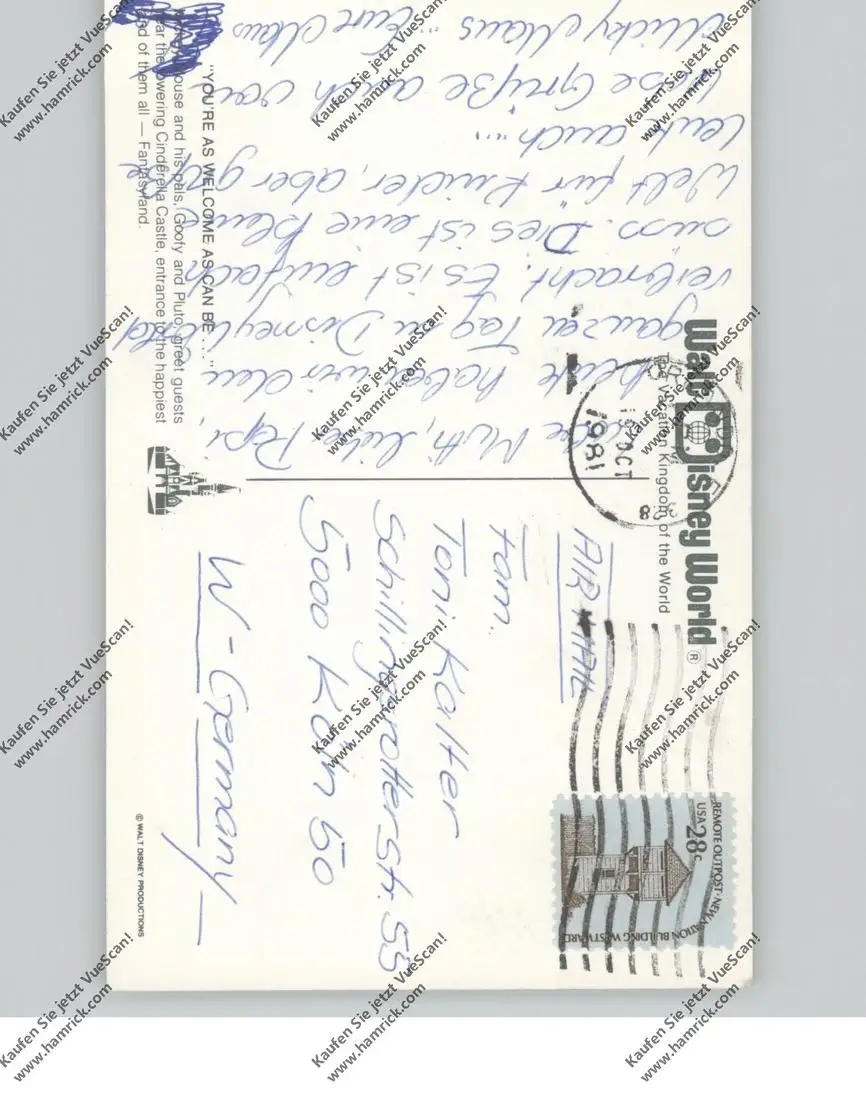 Walt Disney World®
The Vacation Kingdom of the World
Liebe Mutti, lieber Papi,
heute haben wir den
ganzen Tag in Disneyworld
verbracht. Es ist einfach
süss. Dies ist eine kleine
Welt für Kinder, aber große
Leut auch...
Liebe Grüße auch von
Micky Maus" Eure Maus
"YOU'RE AS WELCOME AS CAN BE . . ."
house and his pals, Goofy and Pluto, greet guests
towering Cinderella Castle, entrance to the happiest
of them all — Fantasyland.
OCT
1981
28
AIR MAIL
Fam.
Toni Kalter
Schillingsrotterstr. 55
5000 Köln 50
W-Germany
REMOTE OUTPOST·NEW NATION BUILDING WESTWARD
USA 28c
© WALT DISNEY PRODUCTIONS
Kaufen Sie jetzt VueScan!
www.hamrick.com